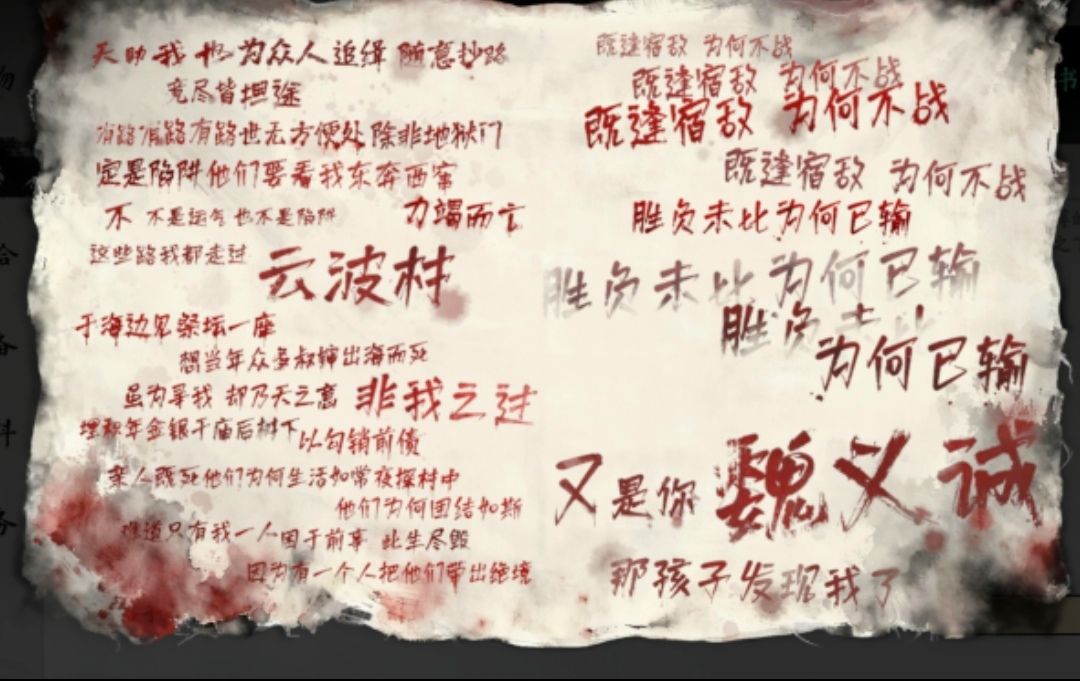 天助我也 为众人追缉 随意抄路
竟尽皆坦途
有路有路有路世无方便处 除非地狱门
定是陷阱他们要看我东奔西窜
不 不是运气也不是陷阱 力竭而亡
这些路我都走过
云波村
于海边见祭坛一座
想当年众多叔婶出海而死
虽为寻我 却乃天之意 非我之过
埋积年金银于庙后树下
以勾销前债
亲人既死他们为何生活如常夜探村中
他们为何团结如斯
难道只有我一人困于前事 此生尽毁
因为有一个人把他们带出绝境
既逢宿敌 为何不战
既逢宿敌 为何不战
既逢宿敌 为何不战
既逢宿敌 为何不战
胜负未比为何已输
胜负未比为何已输
胜负未比
为何已输
又是你 魏义诚
那孩子发现我了